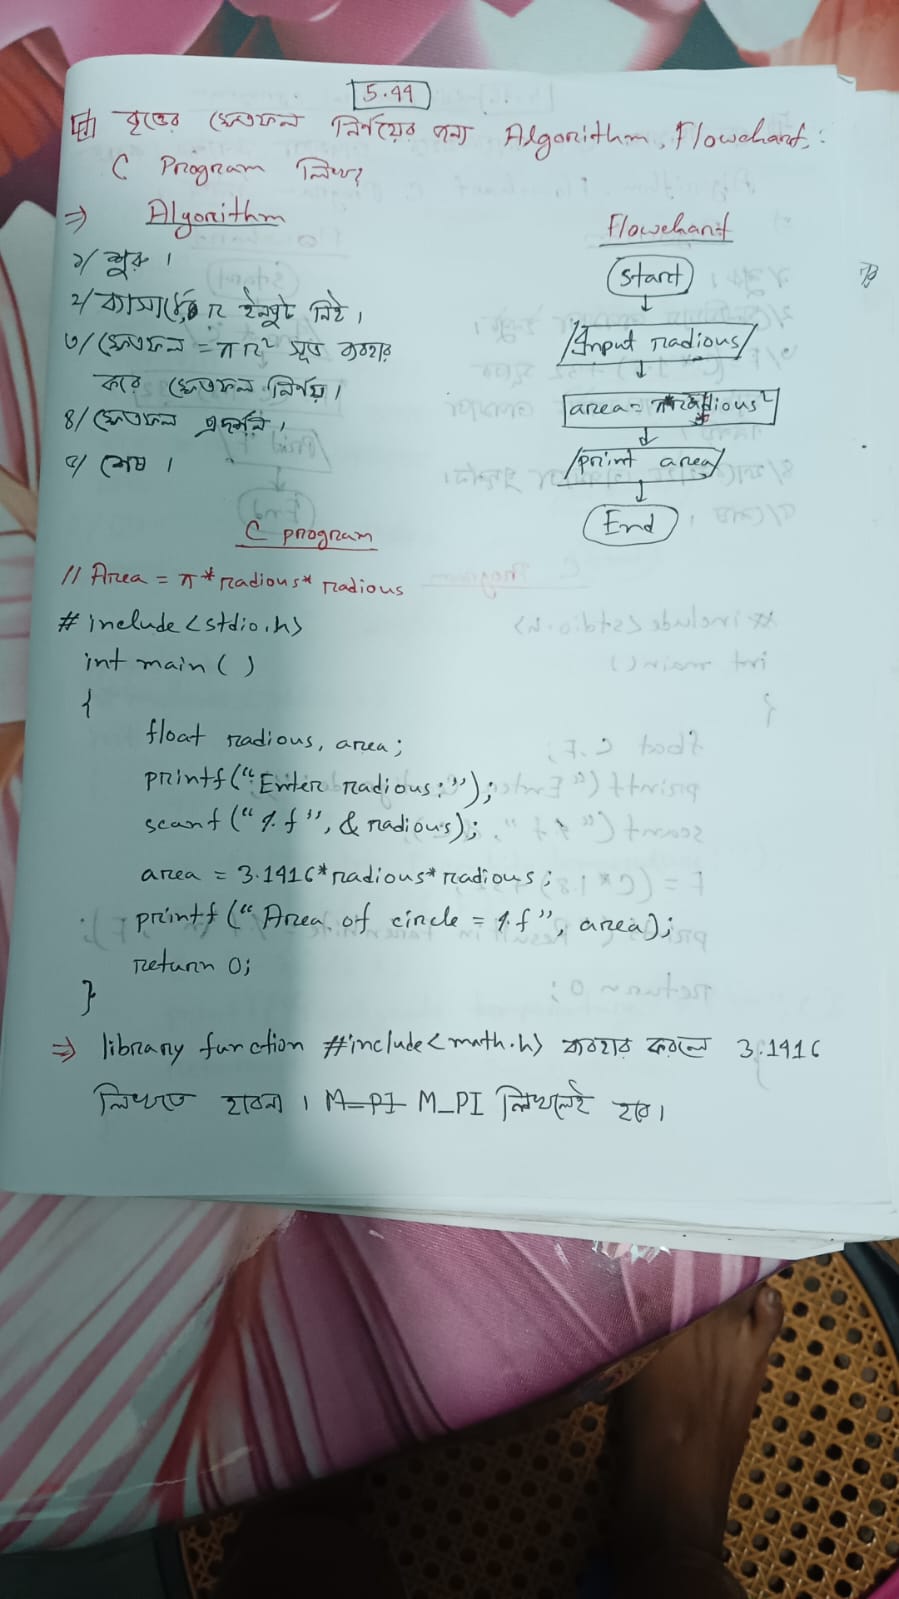 5.44
বৃত্তের ক্ষেত্রফল নির্ণয়ের জন্য Algorithm, Flowchart,
C Program লিখ?
⇒ Algorithm
১/ শুরু ।
২/ ব্যাসার্ধ, r ইনপুট নিই ।
৩/ ক্ষেত্রফল = πr² সূত্র ব্যবহার
করে ক্ষেত্রফল নির্ণয় ।
৪/ ক্ষেত্রফল প্রদর্শন ।
৫/ শেষ ।
Flowchart
Start
Input radious
area = π*radious²
print area
End
C program
// Area = π * radious * radious
# include <stdio.h>
int main ( )
{
float radious, area;
printf("Enter radious:");
scanf ("%f", & radious);
area = 3.1416*radious*radious;
printf ("Area of circle = %f", area);
return 0;
}
⇒ library function #include<math.h> ব্যবহার করলে 3.1416
লিখতে হবেনা । M_PI M_PI লিখলেই হবে ।